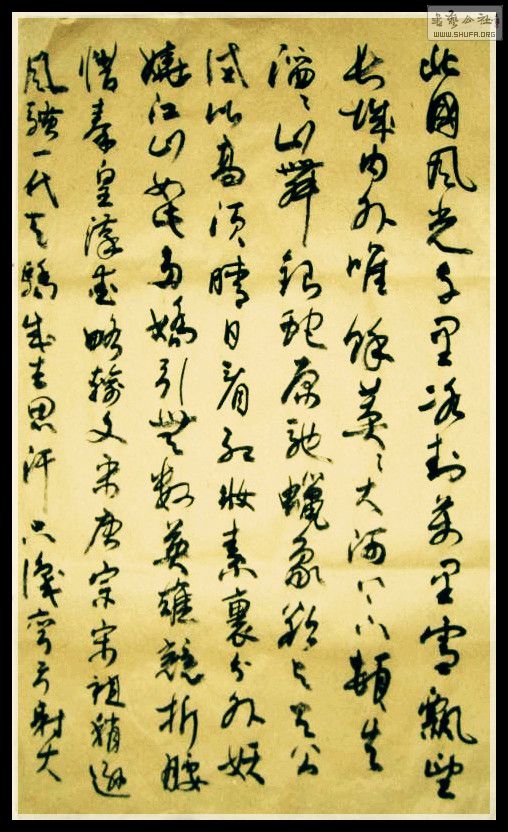 書藝公社
WWW.SHUFA.ORG
北國风光千里冰封万里雪飄望
长城内外唯餘莽々大河上下頓失
滔々山舞銀蛇原馳蠟象欲与天公
试比高須晴日看红妝素裹分外妖
娆江山如此多嬌引無数英雄競折腰
惜秦皇漢武略输文采唐宗宋祖稍遜
风骚一代天骄成吉思汗只識弯弓射大